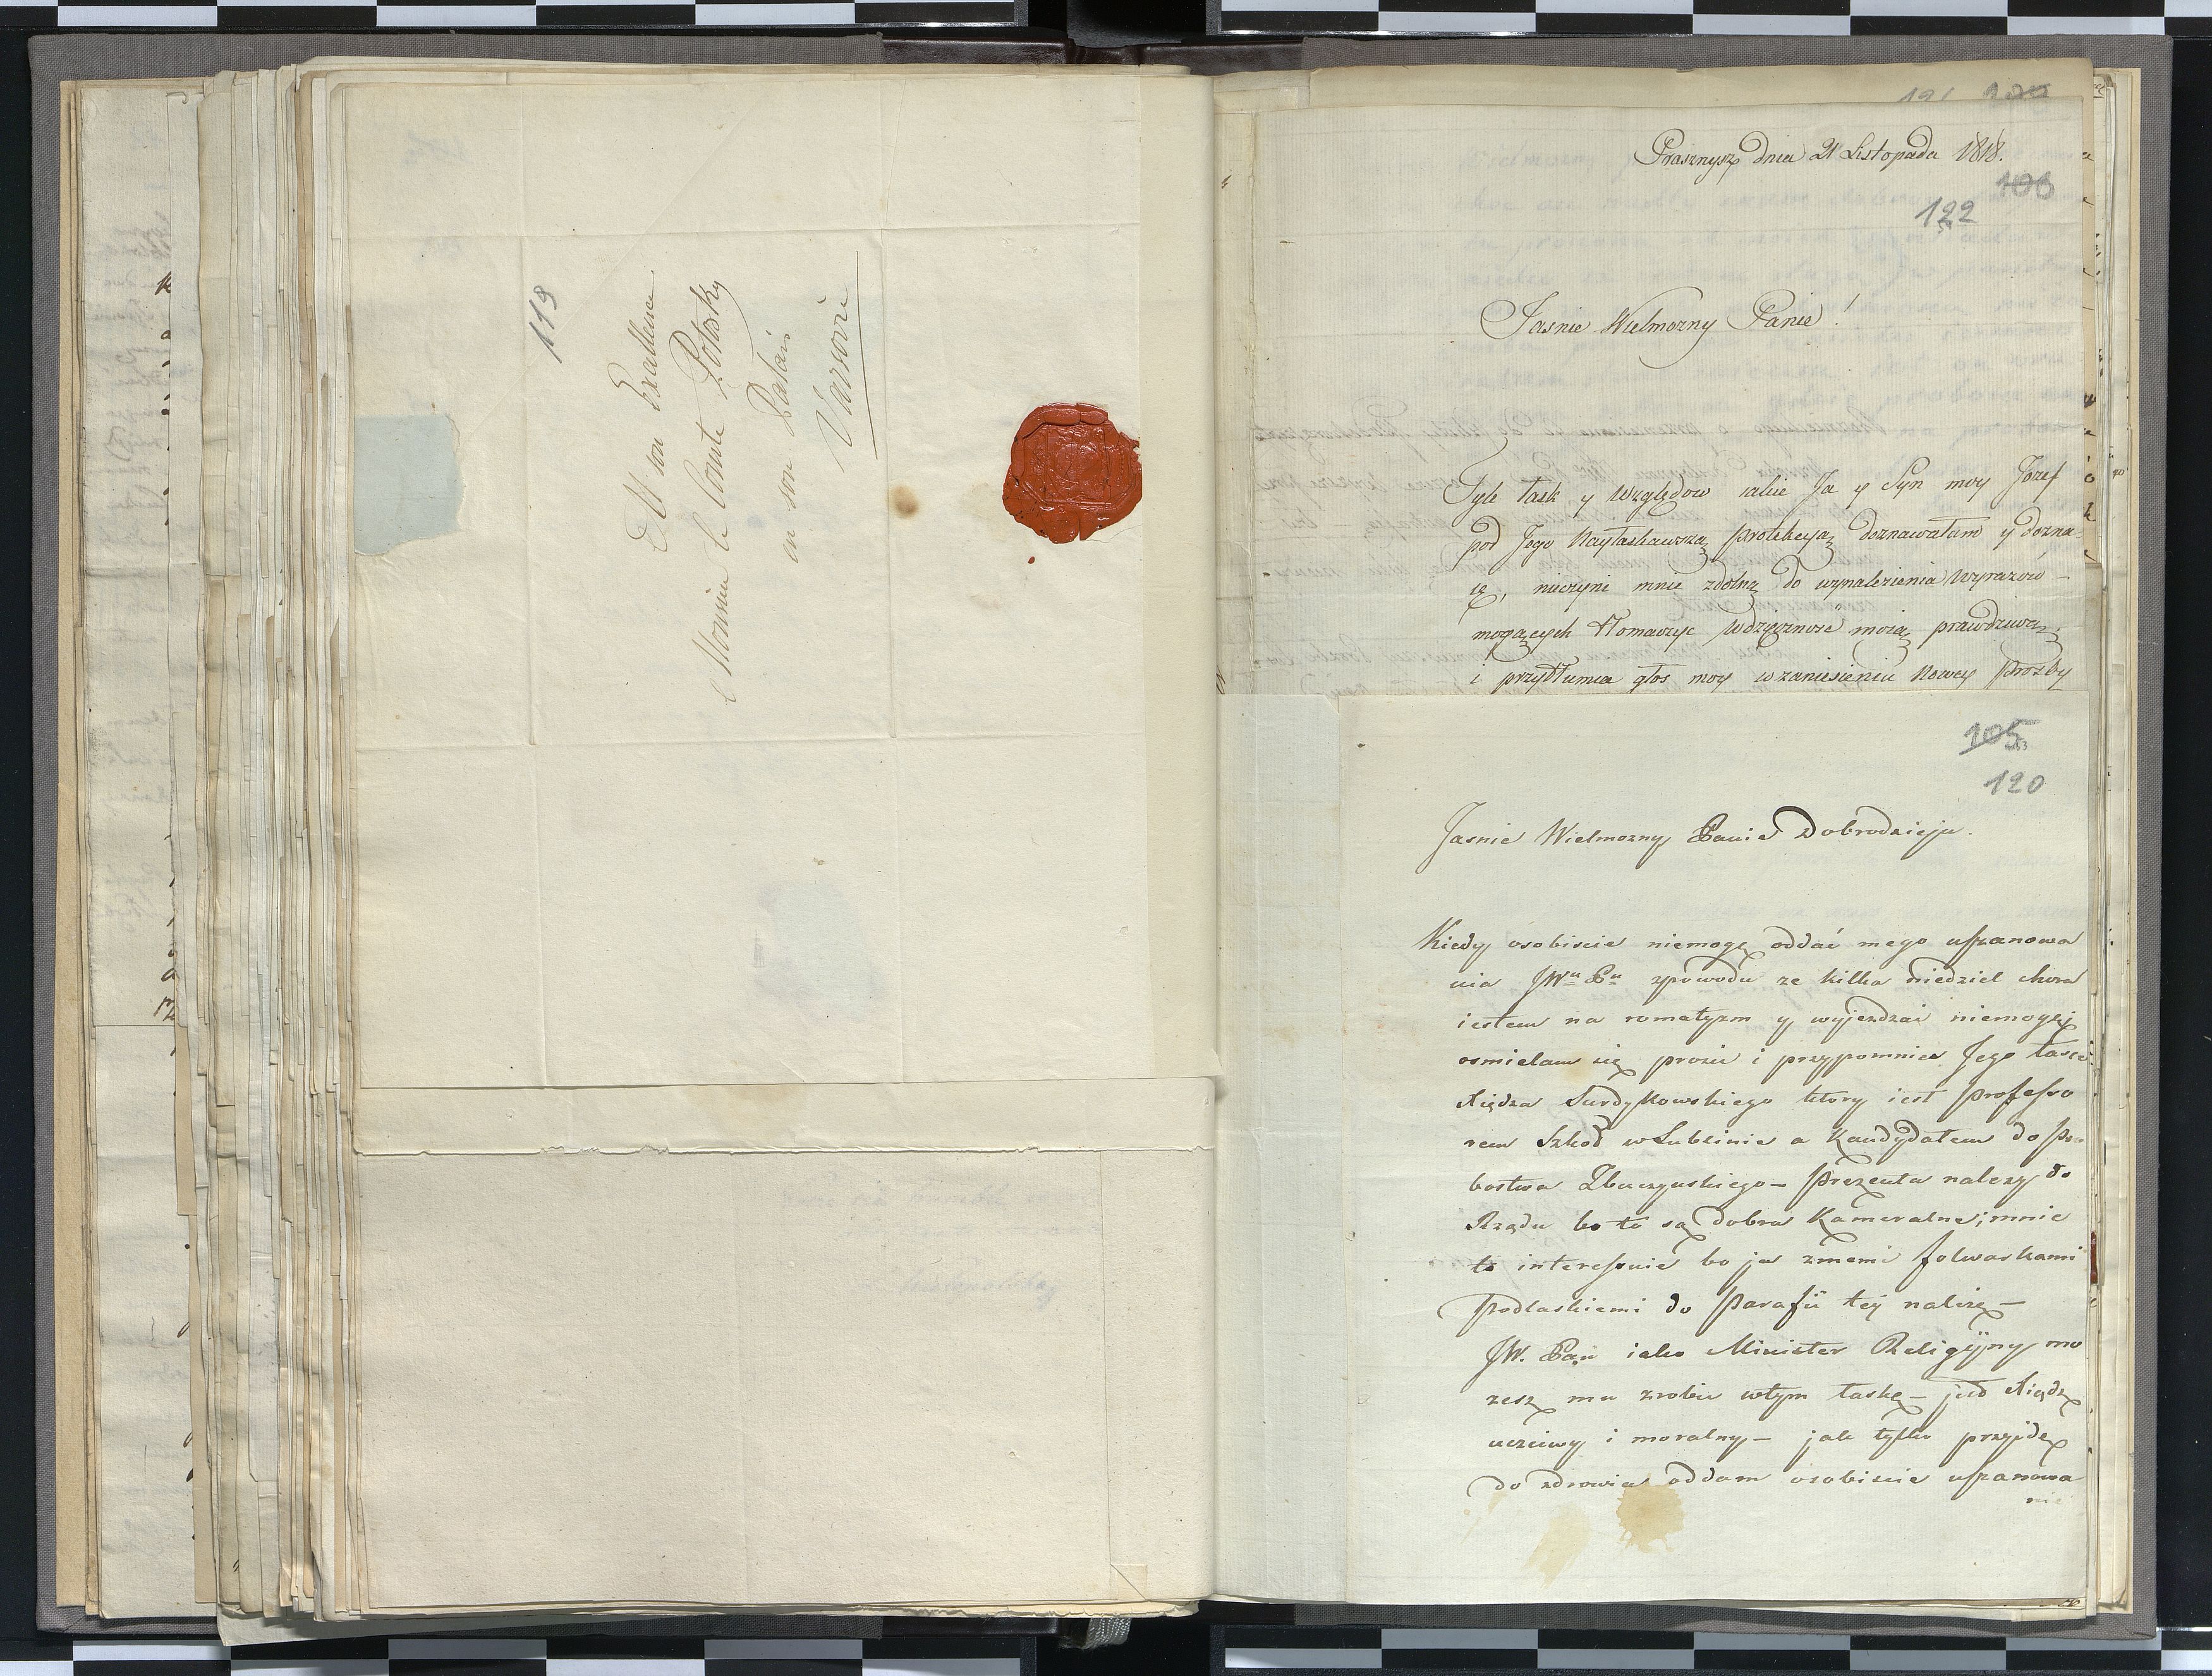 119
A son Excellence
Monsieur le Comte Potocky
en son Palais
Varsovie
Prasznysz dnia 21 Listopada 1818.
106
122
Jasnie Wielmozny Panie!
Tyle łask y Względow iakie Ja y Syn moy Jozef
pod Jego Nayłaskawszą protekcyą doznawałam y dozna-
ię, nieczyni mnie zdolną do wynalezienia wyrazow
mogących tłomaczyc wdzięcznosc moią prawdziwą
i przytłumia głos moy w zaniesieniu Nowey prozby
105
120
Jasnie Wielmozny Panie Dobrodzieju.
Kiedy osobiscie niemogę oddać mego uszanowa
nia JWu Pu zpowodu ze kilka niedziel chora
iestem na romatyzm y wyjezdzać niemogę
osmielam się prosic i przypomniec Jego łasce
Xiędza Surdykowskiego ktory iest Professo
rem Szkoł w Lublinie a Kandydatem do pro
bostwa Zbuczynskiego – Prezenta nalezy do
Rządu bo to są dobra Kameralne; mnie
to interessuie bo ja zmemi folwarkami
podlaskiemi do Parafii tej należę –
JW. Pan iako Minister Religijny mo
zesz mu zrobic wtym łaskę – jest Xiądz
uczciwy i moralny – jak tylko przyjdę
do zdrowia oddam osobiscie uszanowa
nie